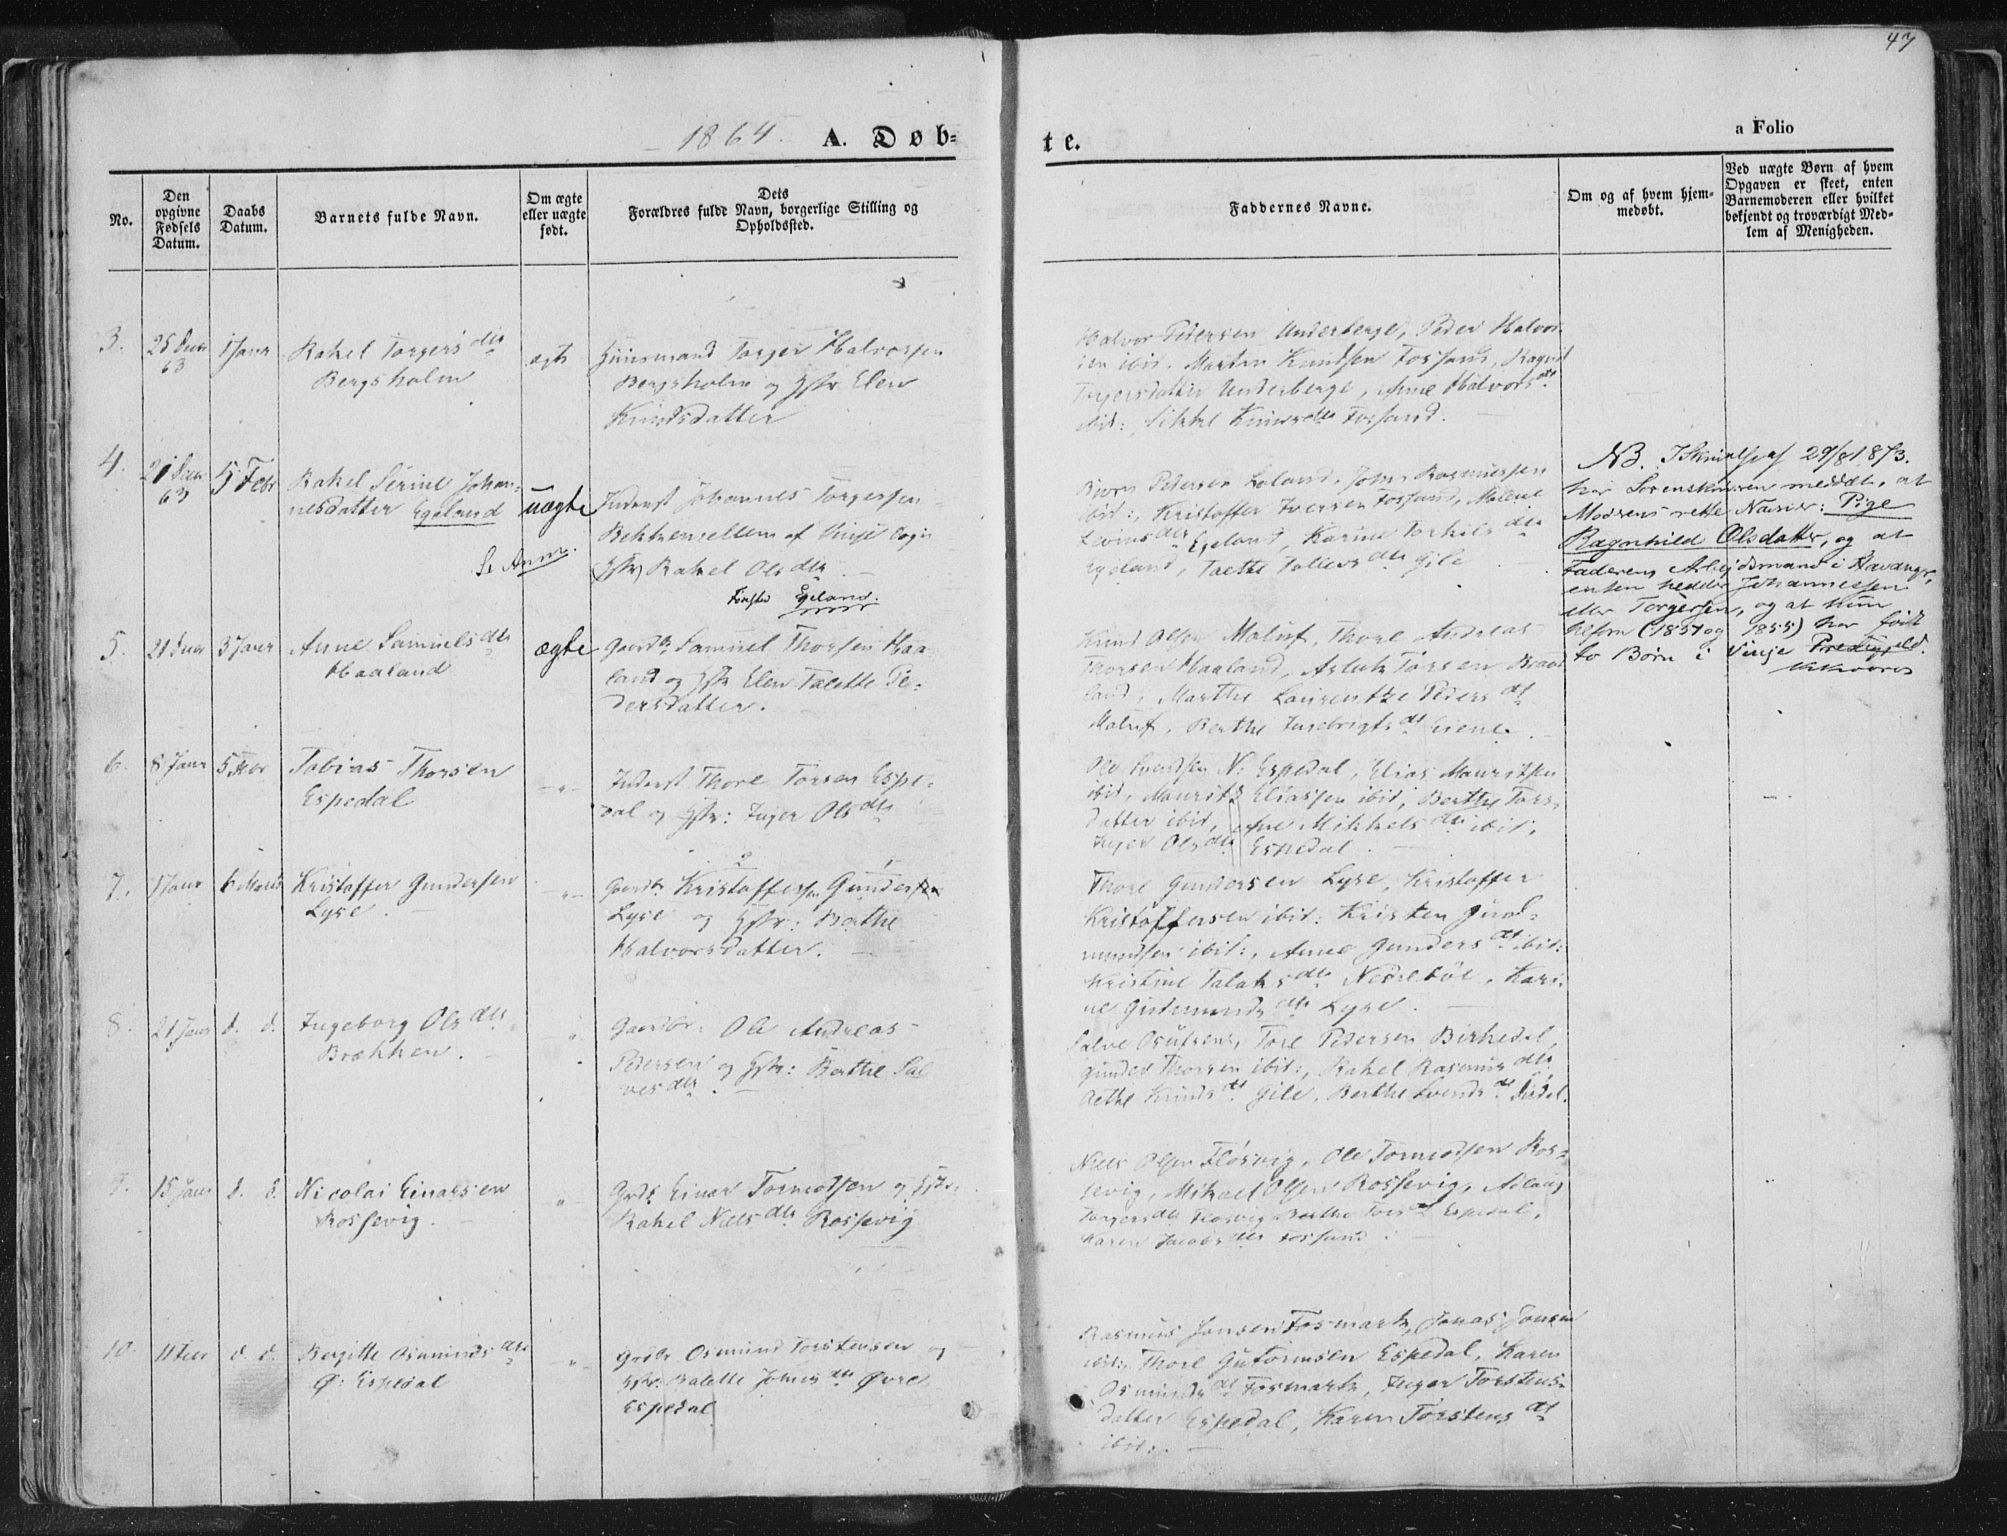 47
1864. A. Døb=
te.
a Folio
No.
Den opgivne Fødsels Datum.
Daabs Datum.
Barnets fulde Navn.
Om ægte eller uægte født.
Dets Forældres fulde Navn, borgerlige Stilling og Opholdssted.
Faddernes Navne.
Om og af hvem hjemmedøbt.
Ved uægte Børn af hvem Opgaven er skeet, enten Barnemoderen eller hvilket bekjendt og troværdigt Medlem af Menigheden.
3.
63
1 Janr
Rakel Torgersdtr
Bergsholm
ægte
Huusmand Torger Halvorsen
Bergsholm og Hstr Elen
Knudsdatter
Halvor Pedersen Underberge, Peder Halvor-
sen ibid. Martin Knudsen Fossand, Ragnil
Torgersdatter Underberge, Anne Halvorsdtr
ibid: Sikkel Knudsdtr Fossand.
4.
21 Decr
63
5 Febr
Rakel Serine Johan-
nesdatter Egeland
uægte
Se Anm.
Inderst Johannes Torgersen
Bekkemellem af Vinje Sogn
Hstr) Rakel Olsdtr
Egeland.
Bjørn Pedersen Loland, John Rasmussen
ibid:, Kristoffer Iversen Fossand, Malene
Egeland, Karine Torkilsdtr
Egeland, Taette Tollevsdtr Gile
NB. I Skrivelse af 29/8 1873.
har Sorenskriveren meddelt, at
Moderens rette Navn er: Pige
Ragnhild Olsdatter, og at
Faderen, Arbejdsmand i Stavanger,
enten hedder Johannessen
eller Torgersen, og at hun
tilforn (1851 og 1855) har født
to Børn i Vinje Præstegjeld.
5.
21 Decr
3 Janr
Anne Samuelsdtr
Haaland
ægte
Gaardbr Samuel Thorsen Haa-
land og Hstr Elen Talette Pe-
dersdatter.
Knud Olsen Maluf, Thore Andreas
Thorsen Haaland, Aslak Torsen Braat-
land, Marthe Laurentze Pedersdt
Maluf, Berthe Ingebrigtsdt Eiene.
6.
8 Janr
5 Febr
Tobias Thorsen
Espedal
-"-
Inderst Thore Torsen Espe-
dal og Hstr: Inger Olsdtr
Ole Svendsen N: Espedal, Elias Mauritsen
ibid, Maurits Eliassen ibid, Berthe Tors-
datter ibid, Ane Mikkelsdtr ibid,
Inger Olsdtr Espedal.
7.
1 Janr
6 Marts
Kristoffer Gundersen
Lyse.
-"-
2 1
Gaardbr Kristoffersen Gundersen
Lyse og Hstr: Berthe
Halvorsdatter.
Thore Gundersen Lyse, Kristoffer
Kristoffersen ibid: Kristen Gud-
mundsen ibid:, Anne Gundersdt ibid:
Kristine Talaksdtr Nedrebøe, Kari-
ne Gudmundsdtr Lyse.
8.
21 Janr
d. d.
Ingeborg Olsdtr
Brækken.
"
Gaardbr: Ole Andreas
Pedersen og Hstr: Berthe Sal-
vesdtr.
Salve Osufsens, Tore Pedersen Birkedal,
Gunder Thorsen ibid:, Rakel Rasmusdtr,
Aette Knudsdt Gile, Berthe Svendsdt
9.
15 Janr
d. d.
Nicolai Einarsen
Rossevig.
"
Grdb. Einar Tormodsen og Hstr:
Rakel Nielsdtr Rossevig
Niels Olsen Fløsvig, Ole Tormodsen Ros-
sevig, Mikael Olsen Rossevig,
Torgersdtr Fløsvig Berthe Torsdt Espedal,
Karen Jacobsdtr Fossand.
10.
d. d.
Bergitte Osmundsdtr
Ø: Espedal
-"-
Grdbr Osmund Torstensen og
Hstr: Balette Jonasdtr Øvre
Espedal
Rasmus Jonsen Fosmark, Jonas Jonsen
ibid:. Thore Gutormsen Espedal, Karen
Osmundsdt Fosmark, Inger Torstens-
datter Espedal, Karen Torstensdt
ibid:.